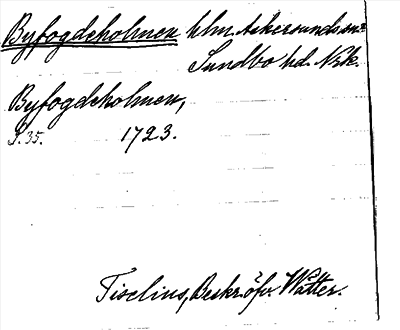 Byfogdeholmen holm Askersunds sn:
Sundbo hd. Nrk.
Byfogdeholmen,
S. 35. 1723.
Tiselius, Beskr. öfv. Wätter.